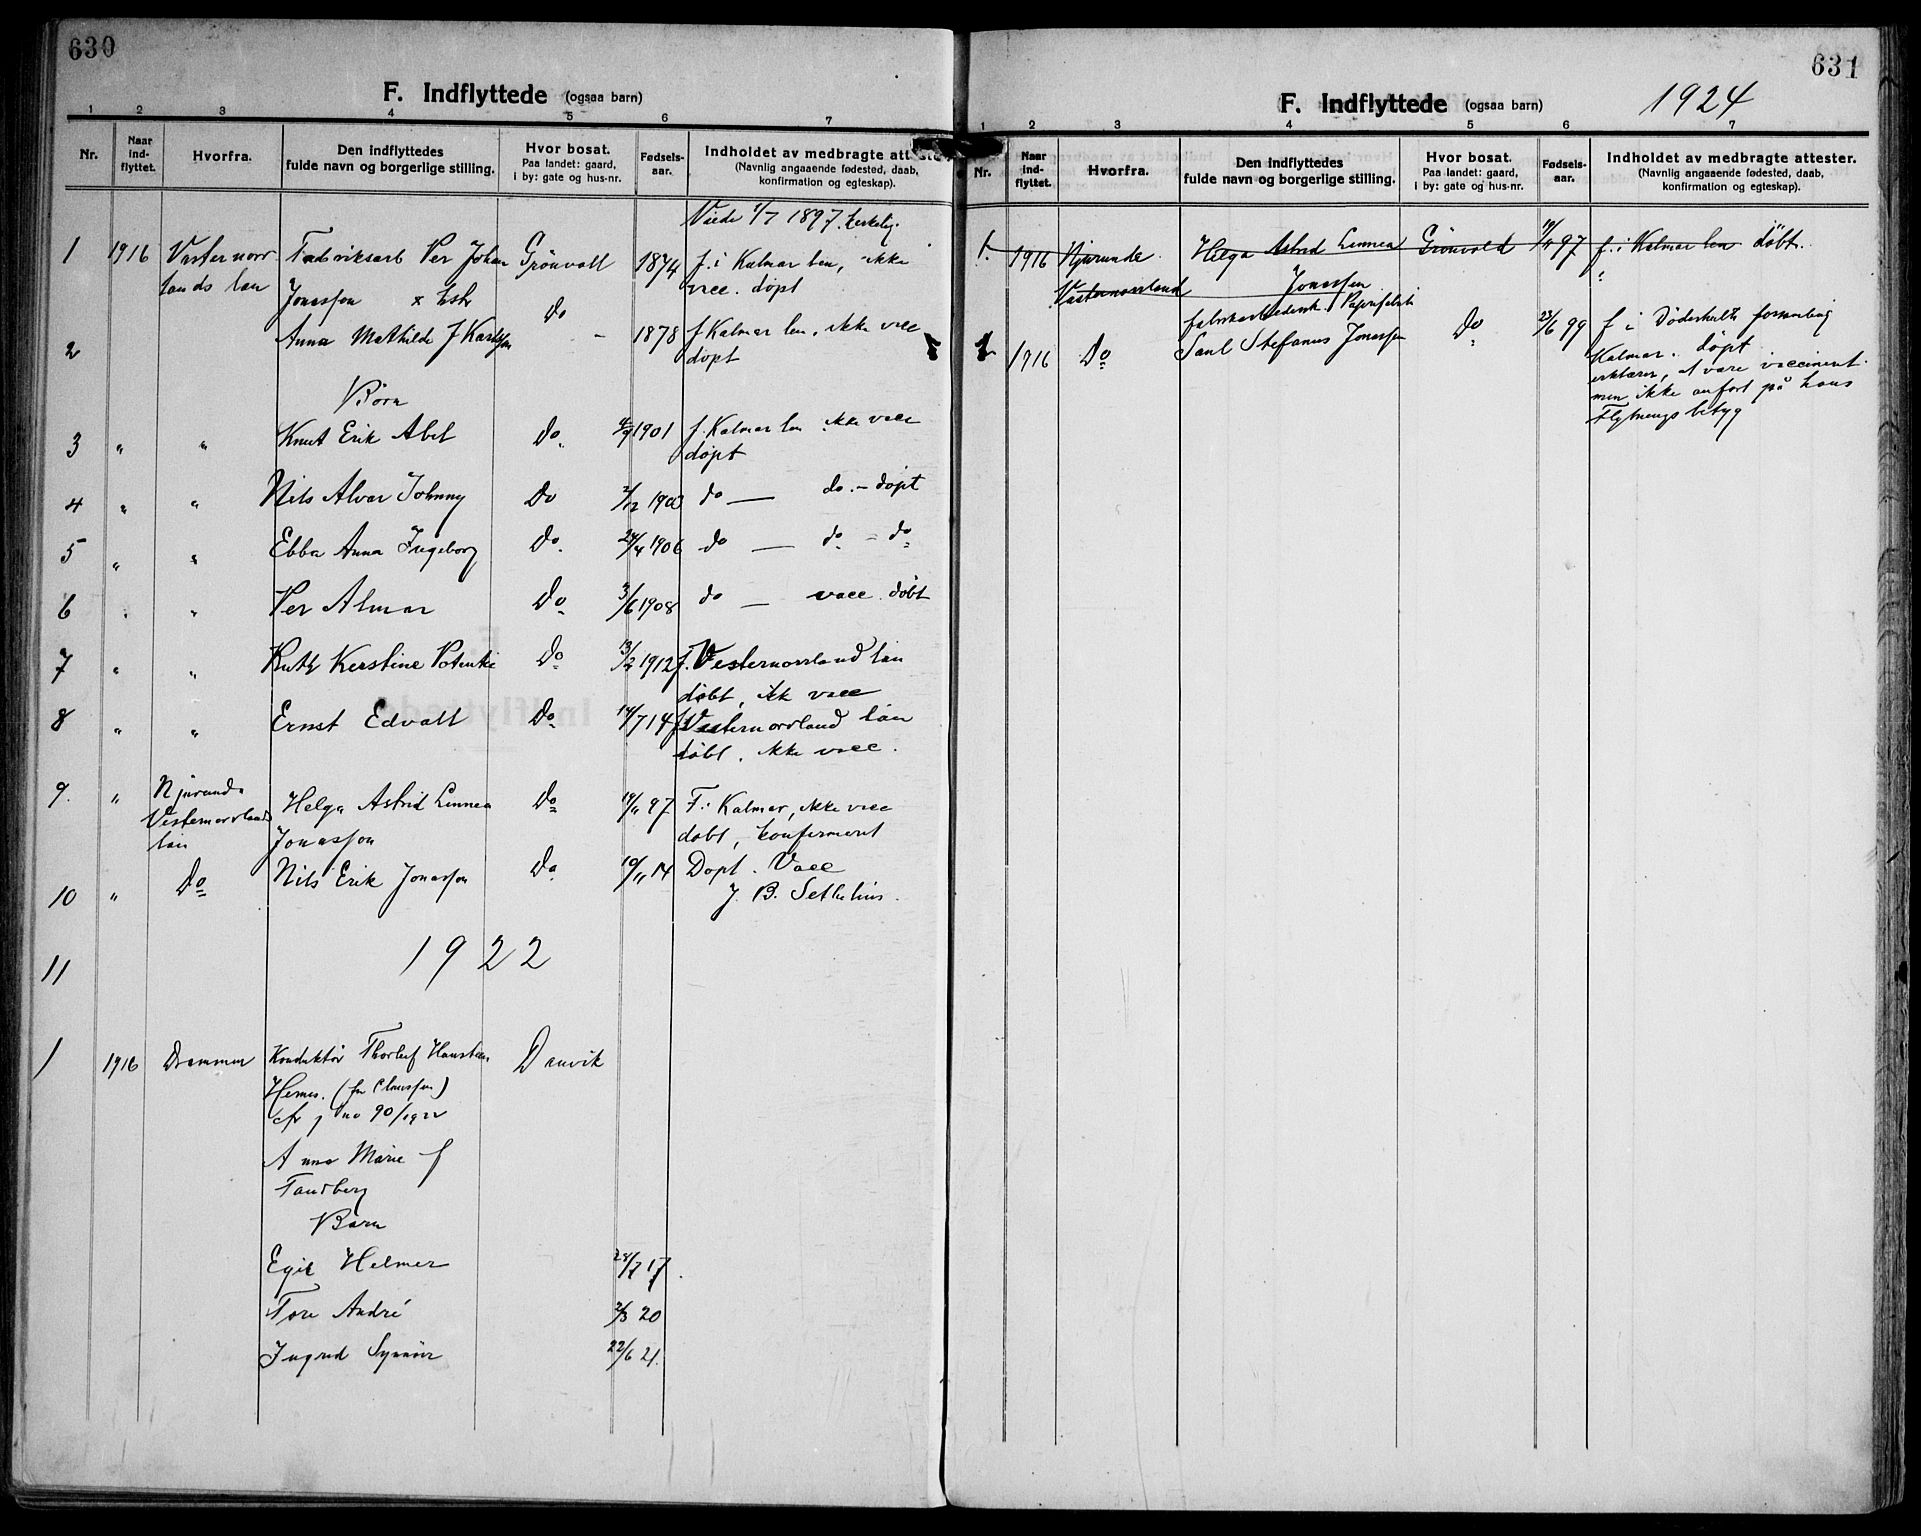 630
F. Indflyttede (ogsaa barn)
1 2 3 4 5 6 7
Nr. Naar ind- flyttet. Hvorfra. Den indflyttedes fulde navn og borgerlige stilling. Hvor bosat. Paa landet: gaard, i by: gate og hus-nr. Fødsels- aar. Indholdet av medbragte atteste (Navnlig angaaende fødested, daab, konfirmation og egteskap).
Viede 1/7 1897
1 1916 Vesternorr Fabriksarb Per Johan Grönvolt 1874 f. i Kalmar len, ikke
lands lan Jonasson Do vacc. döpt
2 Anna Mathilde f Karlsson - 1878 f Kalmar len, ikke vacc
döpt
Börn
3 " " Knut Erik Abel Do 4/9 1901 f. Kalmar len ikke vacc
döpt
4 " " Nils Alvar Johnny Do 2/12 1900 do — do - döpt
5 " " Ebba Anna Ingeborg Do 24/4 1906 do — do - do
6 " " Per Almar Do 3/6 1908 do — vacc. döbt
7 " " Ruth Kerstine Potentie Do 13/2 1912 f. Vesternorrland lan
döbt, ikk vacc
8 " " Ernst Edvalt Do 14/7 14 f Vesternorrland lan
döbt, ikke vacc.
9. " Njurunda Helga Astrid Linnea Do 19/11 97 F. i Kalmar, ikke vacc
Vesternorrlands lan Jonasson döbt, konfirmert
10 " Do Nils Erik Jonasson Do 10/11 14 Döpt. Vacc
J. B. Sethelius.
11 1922
1 1916 Drammen Konduktör Thorleif Hansteen Danvik
Hernes. (før Claussen)
cfr j no 90/1922
Anna Marie f
Tandberg
Børn
Egil Helmer 28/7 17.
Tore André 2/3 20
Ingrid Synnöve 22/6 21.
631
F. Indflyttede (ogsaa barn) 1924
1 2 3 4 5 6 7
Nr. Naar ind- flyttet. Hvorfra. Den indflyttedes fulde navn og borgerlige stilling. Hvor bosat. Paa landet: gaard, i by: gate og hus-nr. Fødsels- aar. Indholdet av medbragte attester. (Navnlig angaaende fødested, daab, konfirmation og egteskap).
1. 1916 Njurunde Helga Astrid Linnea Grönvold 19/11 97 f. i Kalmar len döbt.
Vesternorrland Jonassen
fabrikarbeidersk. Papirfabrik
1 1916 Do Saul Stefanus Jonassen Do 23/6 99 f i Döderhults forsamling
Kalmar. döpt
erklærer, at være vaccineret
men ikke anfört på hans
Flytnings betyg